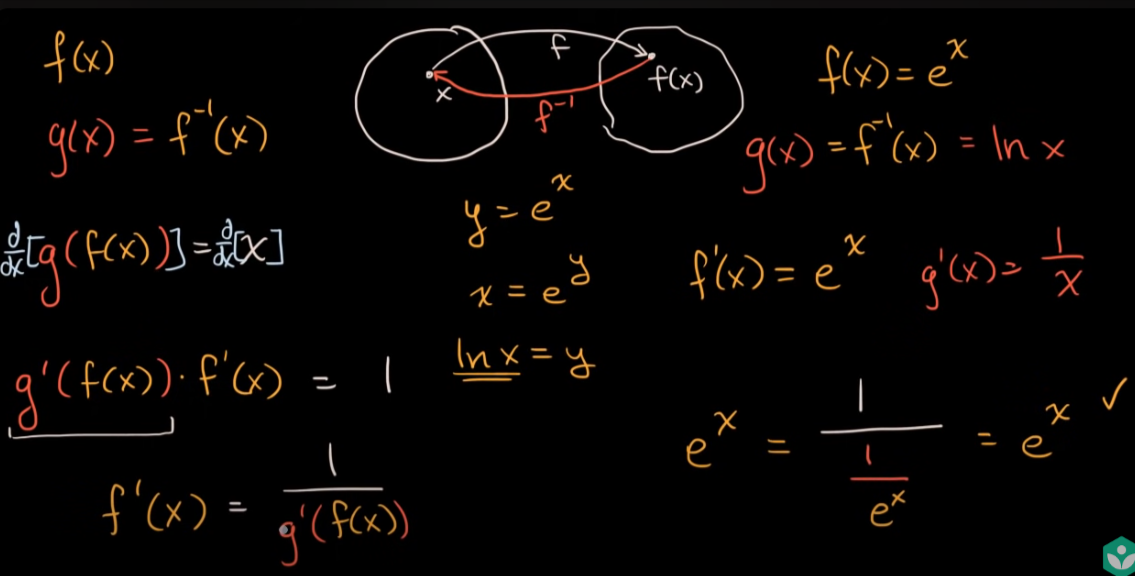 f(x)
g(x) = f⁻¹(x)
d/dx[g(f(x))] = d/dx[x]
g'(f(x)) · f'(x) = 1
f'(x) = 1/g'(f(x))
f
x
f(x)
f⁻¹
y = eˣ
x = eʸ
ln x = y
f(x) = eˣ
g(x) = f⁻¹(x) = ln x
f'(x) = eˣ g'(x) = 1/x
eˣ = 1/(1/eˣ) = eˣ ✓